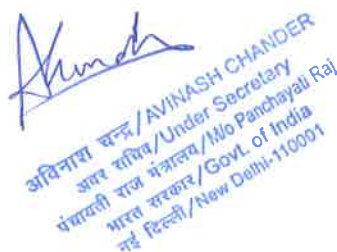 अविनाश चन्द्र/AVINASH CHANDER
अवर सचिव/Under Secretary
पंचायती राज मंत्रालय/M/o Panchayati Raj
भारत सरकार/Govt. of India
नई दिल्ली/New Delhi-110001